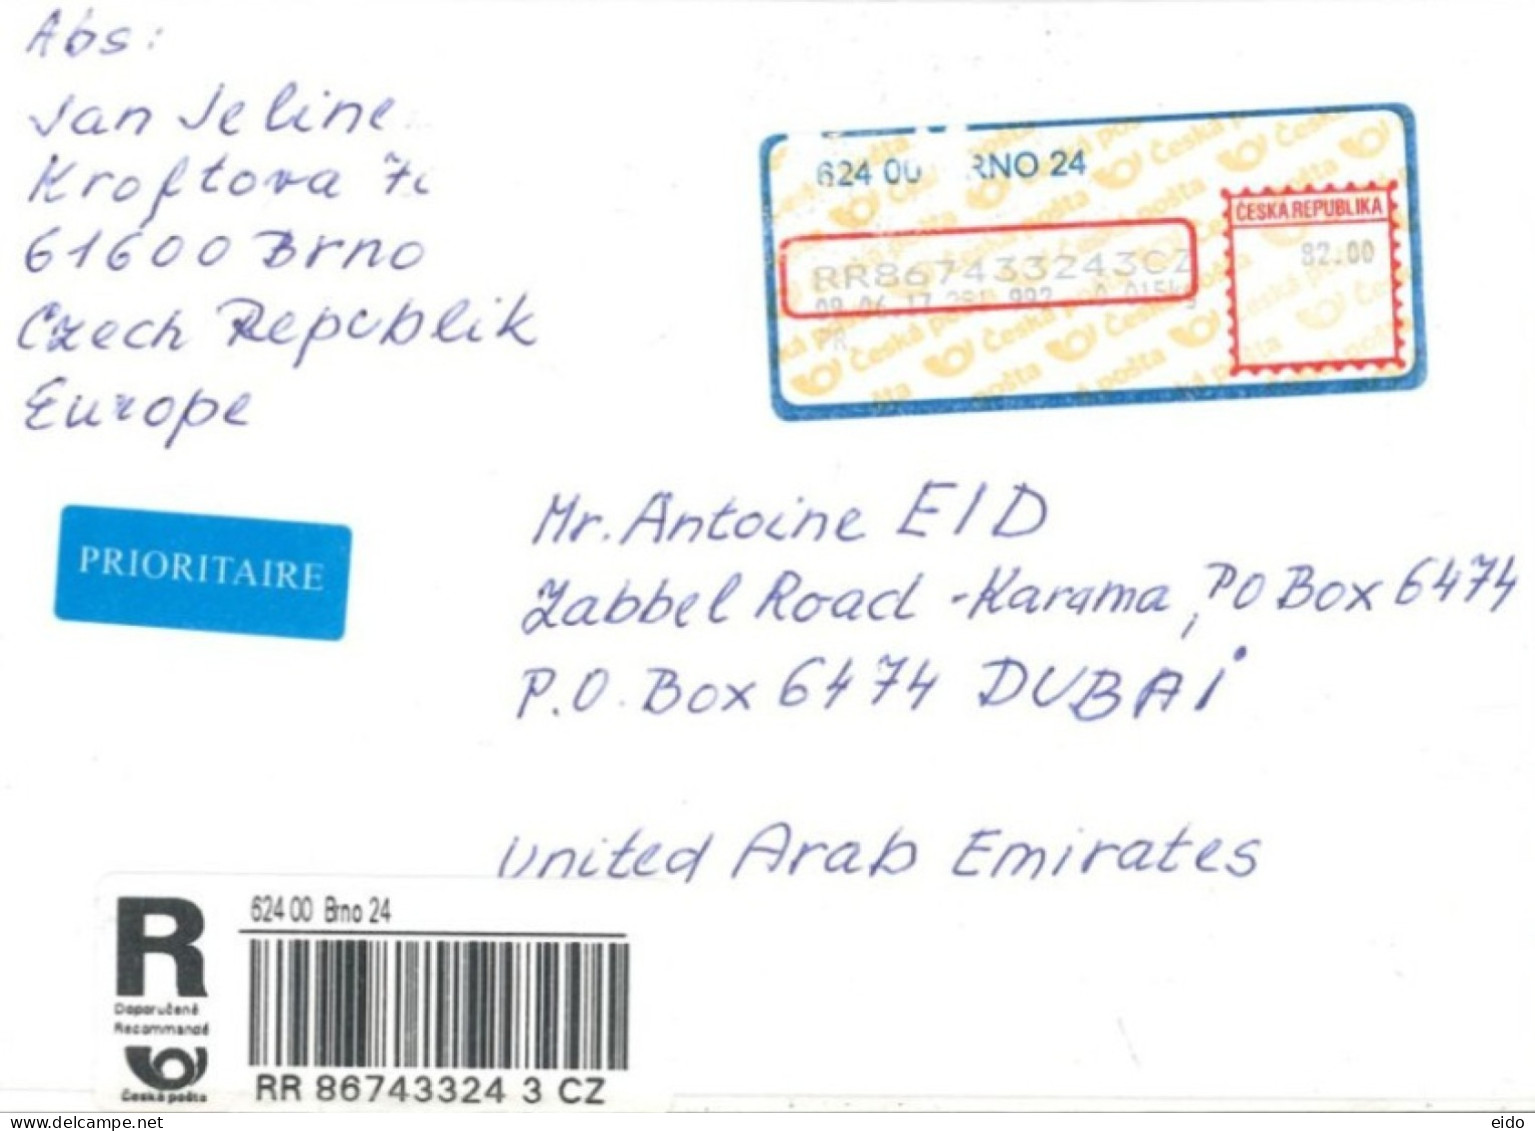 Abs:
Jan Jeline
Kroftova 7
61600 Brno
Czech Republik
Europe
624 00 RNO 24
ČESKÁ REPUBLIKA
82.00
RR867433243CZ
0.015kg
PR
PRIORITAIRE
Mr. Antoine EID
Zabbel Road - Karama, PO Box 6474
P.O. Box 6474 DUBAi
United Arab Emirates
R
624 00 Brno 24
Doporučeně
Recommandé
Česká pošta
RR 86743324 3 CZ
delcampe.net
eido